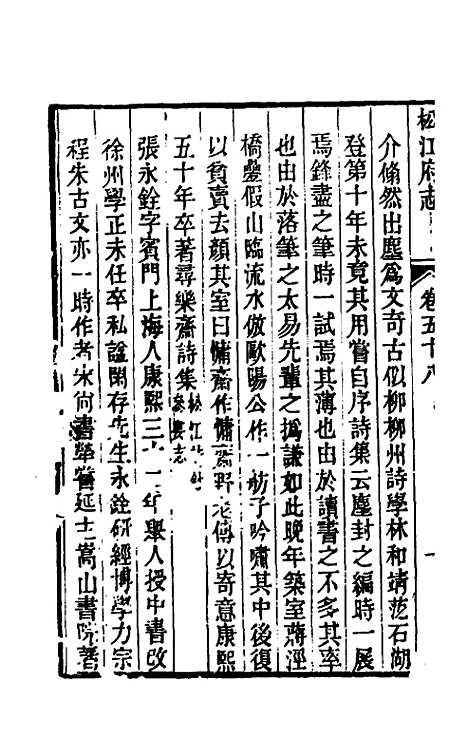 松江府志
卷五十八
介翛然出塵爲文奇古似柳柳州詩學林和靖范石湖
登第十年未竟其用嘗自序詩集云塵封之編時一展
焉鋒盡之筆時一試焉其薄也由於讀書之不多其率
也由於落筆之太易先輩之撝謙如此晚年築室蔣涇
橋壘假山臨流水倣歐陽公作一舫子吟嘯其中後復
以貧賣去顔其室曰慵齋作慵齋野老傳以寄意康熙
五十年卒著尋樂齋詩集 婁志
張永銓字賓門上海人康熙三十二年舉人授中書改
徐州學正未任卒私諡閑存先生永銓研經博學力宗
程朱古文亦一時作者宋尚書犖嘗延主嵩山書院著